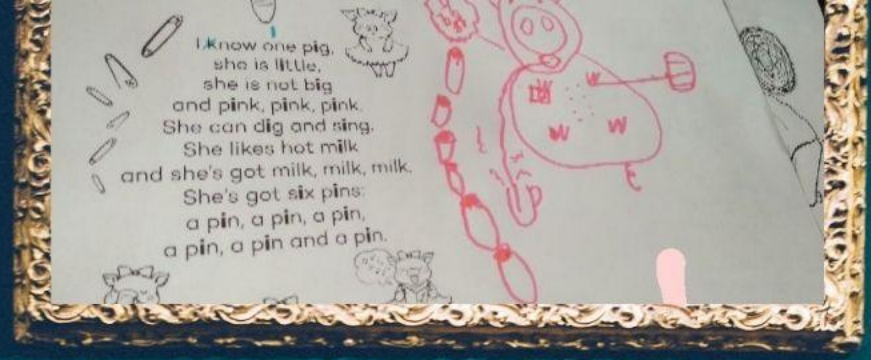 I know one pig,
she is little,
she is not big
and pink, pink, pink.
She can dig and sing.
She likes hot milk
and she's got milk, milk, milk.
She's got six pins:
a pin, a pin, a pin,
a pin, a pin and a pin.